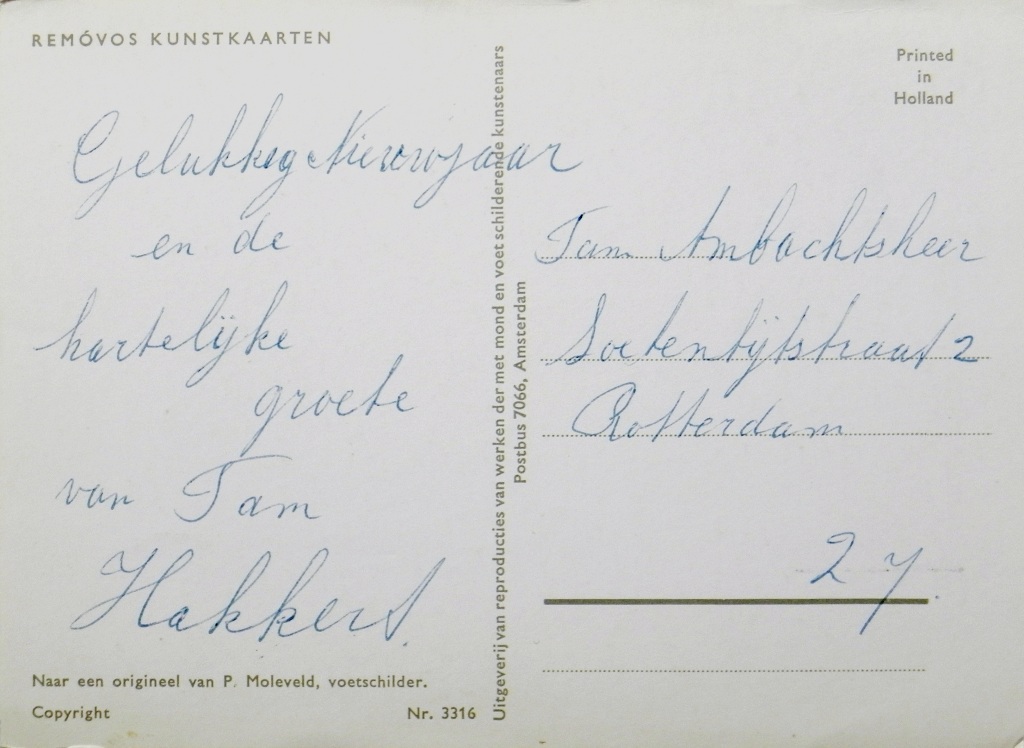 REMÓVOS KUNSTKAARTEN
Gelukkig Nieuwjaar
en de
hartelijke
groete
van Tam
Hakkert
Naar een origineel van P. Moleveld, voetschilder.
Copyright
Nr. 3316
Uitgeverij van reproducties van werken der met mond en voet schilderende kunstenaars
Postbus 7066, Amsterdam
Printed
in
Holland
Tam Ambachtsheer
Soetentijtstraat 2
Rotterdam
27